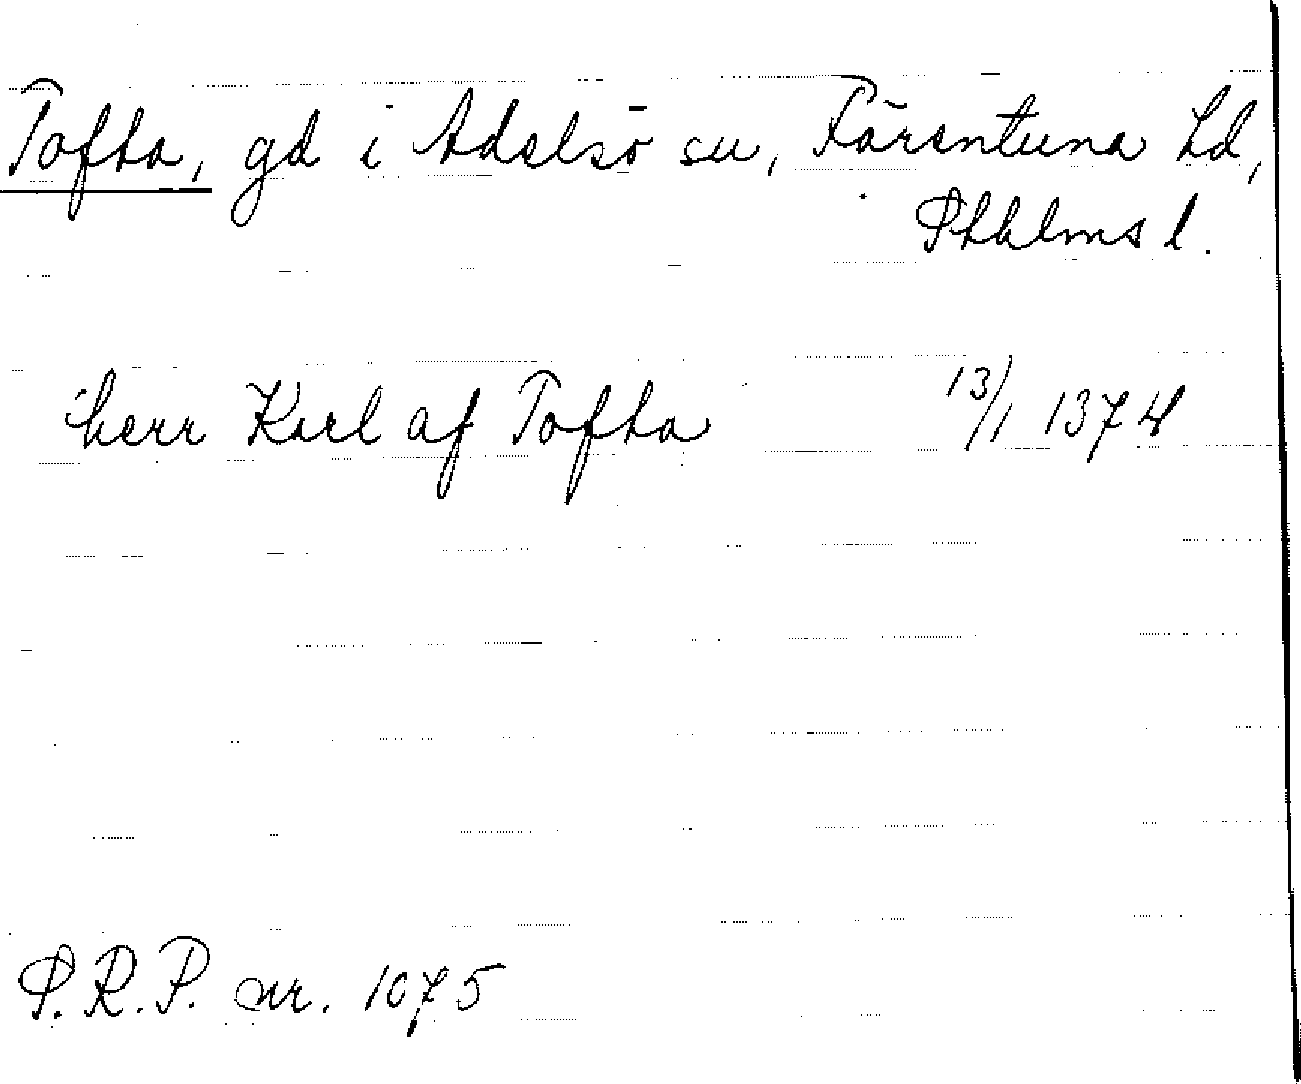 Tofta, gd i Adelsö sn, Färentuna hd,
Sthlms l.
herr Karl af Tofta 13/1 1374
S.R.P. nr. 1075